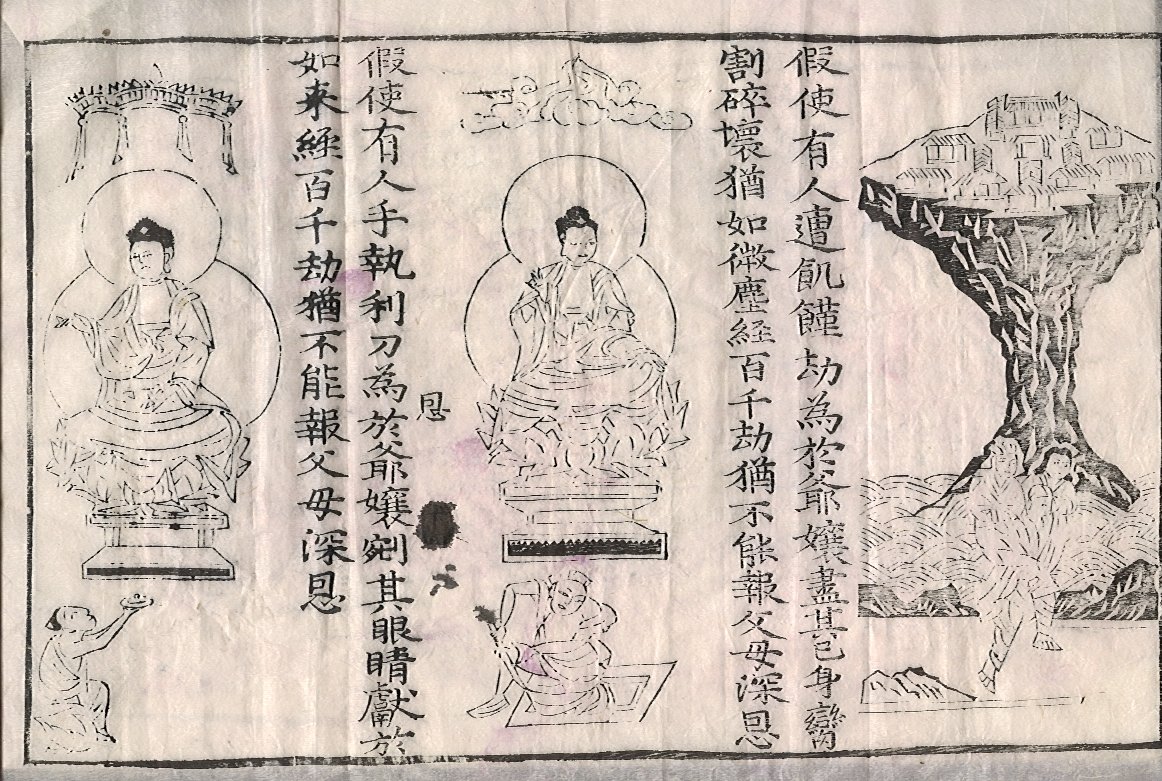 假使有人遭飢饉劫為於爺孃盡其己身臠
割碎壞猶如微塵經百千劫猶不能報父母深恩
恩
假使有人手執利刀為於爺孃剜其眼睛獻於
如来經百千劫猶不能報父母深恩